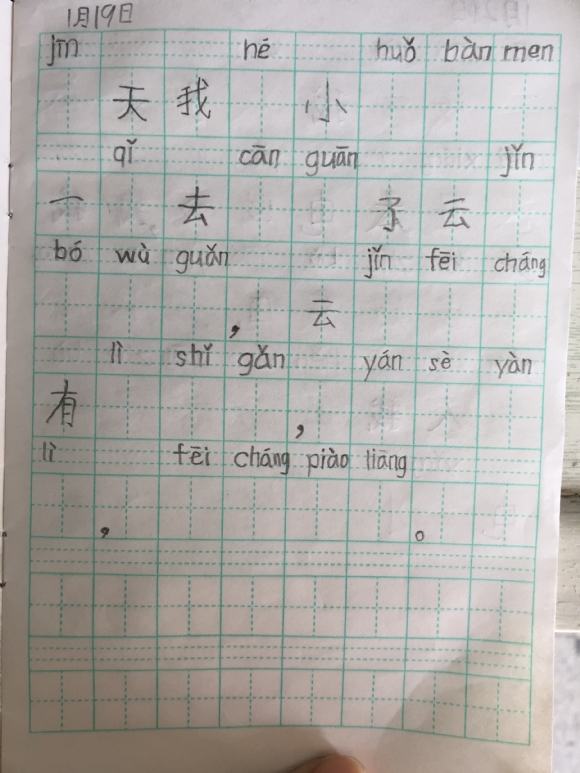 1月19日
jīn hé huǒ bàn men
天 我 小
qǐ cān guān jǐn
一 去 了 云
bó wù guǎn jǐn fēi cháng
， 云
lì shǐ gǎn yán sè yàn
有 ，
lì fēi cháng piào liāng
， 。